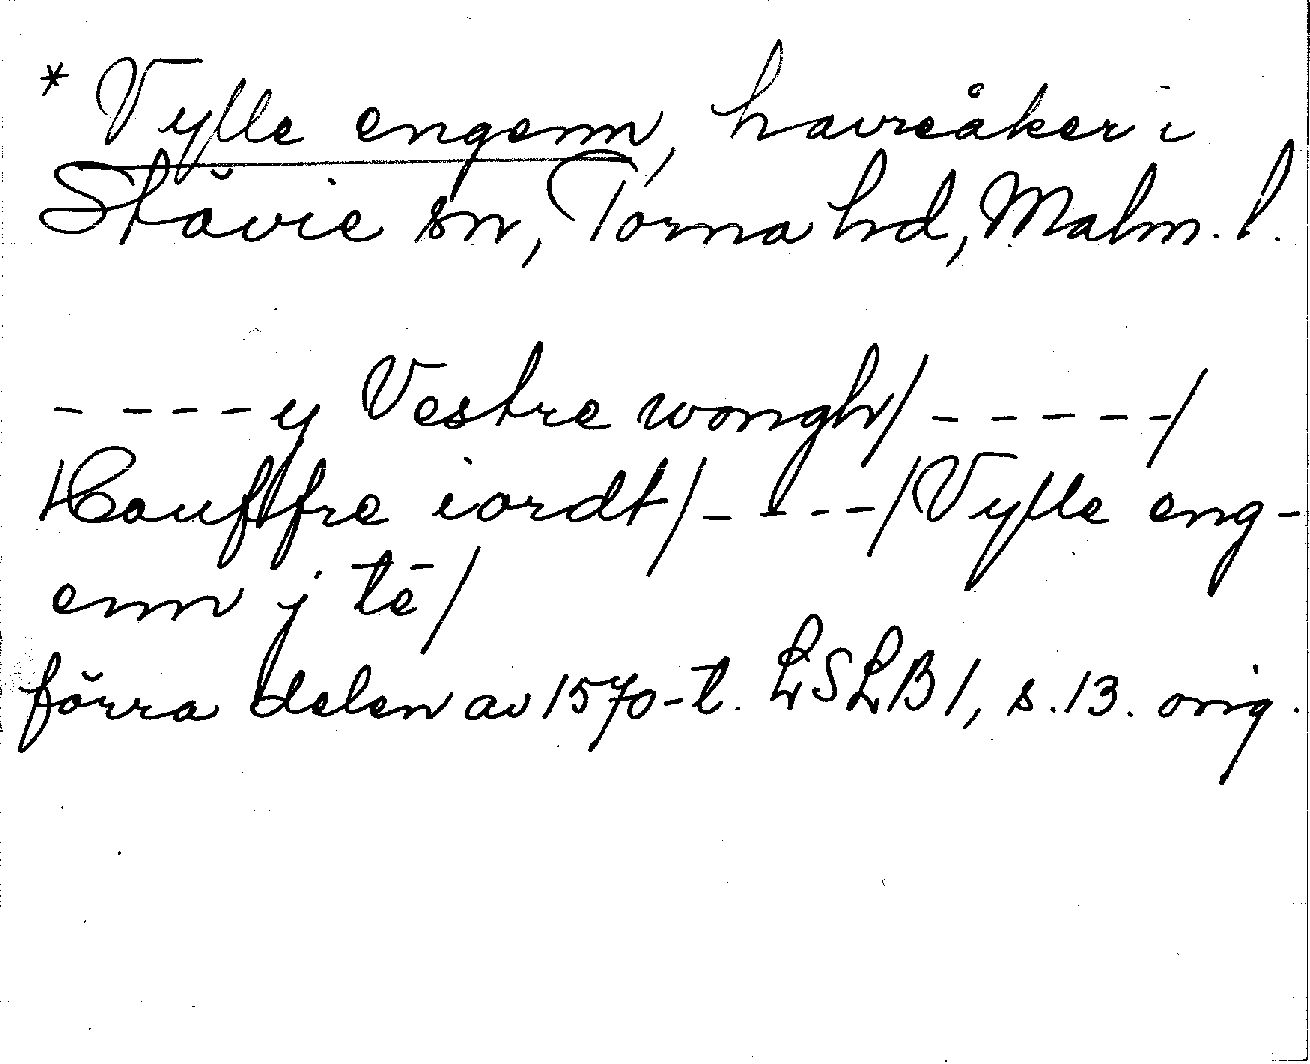 * Vylle engenn, havreåker i
Stävie sn, Torna hd, Malm. l.
- - - - y Vestre wongh/ - - - - -/
Hauffre iordt/ - - - -/ Vylle eng-
enn j tē/
förra delen av 1570-t. LSLB 1, s. 13. orig.